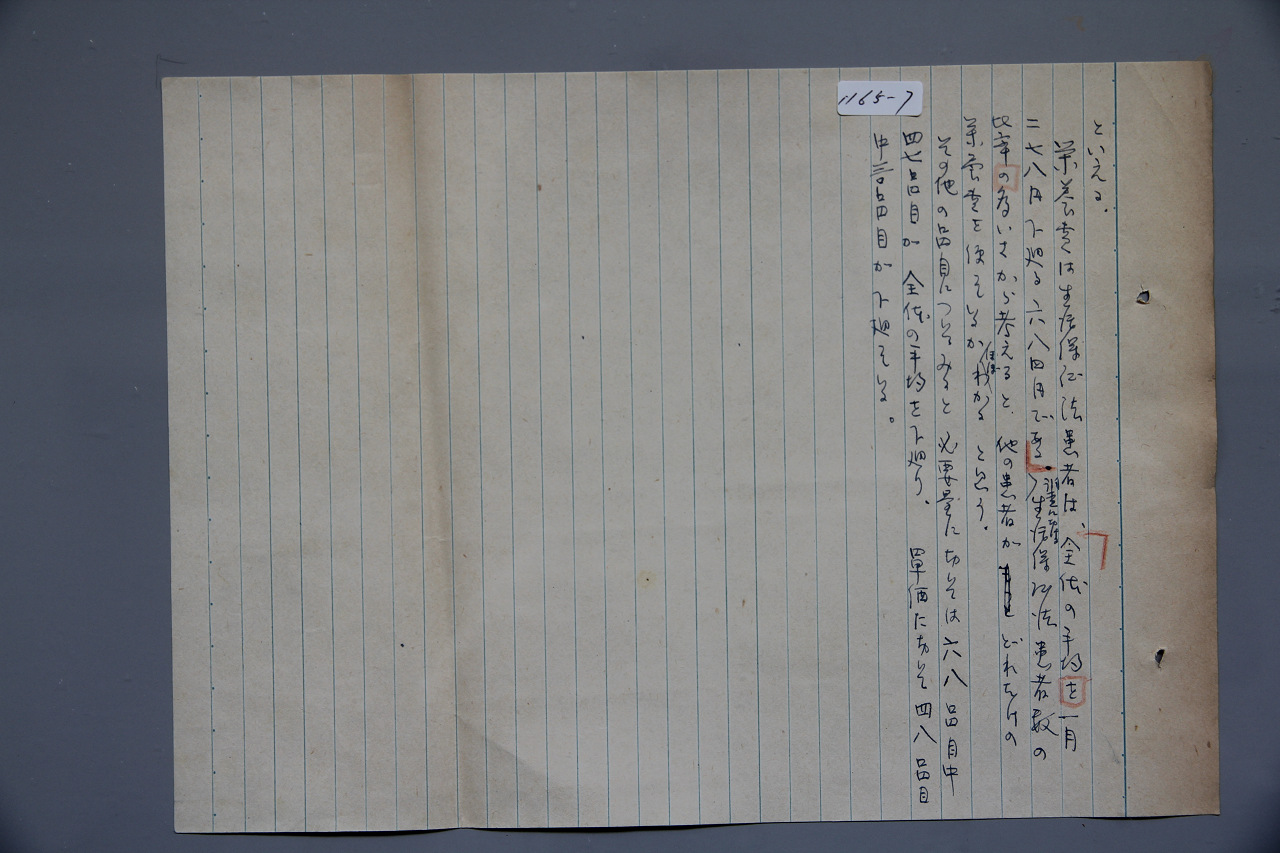 1165-7
といえる。
栄養費は生活保護法患者は、全体の平均を一月
二七八円下廻る六八四円である。生活保護法患者数の
比率の高いさから考えると、他の患者がどれだけの
栄養費を使っているかほぼわかると思う。
その他の品目についてみると必要量に於ては六八品目中
四七品目が全体の平均を下廻り、単価に於て四八品目
中三〇品目が下廻っている。